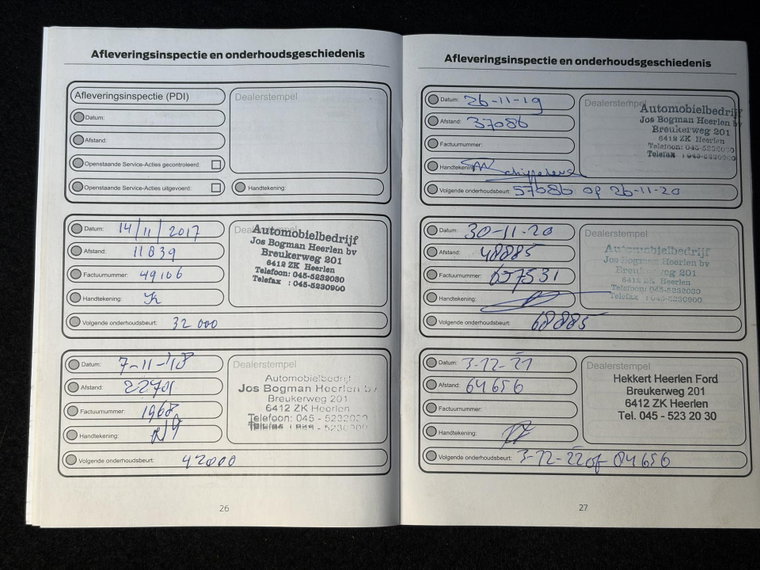 Afleveringsinspectie en onderhoudsgeschiedenis
Afleveringsinspectie (PDI)
Datum:
Afstand:
Openstaande Service-Acties gecontroleerd:
Openstaande Service-Acties uitgevoerd:
Dealerstempel
Handtekening:
Datum: 14/11/2017
Afstand: 11839
Factuurnummer: 49106
Handtekening:
Volgende onderhoudsbeurt: 32 000
Automobielbedrijf
Jos Bogman Heerlen bv
Breukerweg 201
6412 ZK Heerlen
Telefoon: 045-5232030
Telefax : 045-5230900
Datum: 7-11-'18
Afstand: 22701
Factuurnummer: 1968
Handtekening:
Volgende onderhoudsbeurt: 42000
Dealerstempel
Automobielbedrijf
Jos Bogman Heerlen bv
Breukerweg 201
6412 ZK Heerlen
Telefoon: 045 - 5232030
26
Afleveringsinspectie en onderhoudsgeschiedenis
Datum: 26-11-19
Afstand: 37086
Factuurnummer:
Handtekening:
Volgende onderhoudsbeurt: 57086 op 26-11-20
Dealerstempel
Automobielbedrijf
Jos Bogman Heerlen bv
Breukerweg 201
6412 ZK Heerlen
Telefoon: 045-5232030
Datum: 30-11-20
Afstand: 48885
Factuurnummer: 657531
Handtekening:
Volgende onderhoudsbeurt: 68885
Dealerstempel
Automobielbedrijf
Jos Bogman Heerlen bv
Breukerweg 201
6412 ZK Heerlen
Telefoon: 045-5232030
Telefax : 045-5230900
Datum: 3-12-21
Afstand: 64656
Factuurnummer:
Handtekening:
Volgende onderhoudsbeurt: 3-12-22 of 84656
Dealerstempel
Hekkert Heerlen Ford
Breukerweg 201
6412 ZK Heerlen
Tel. 045 - 523 20 30
27